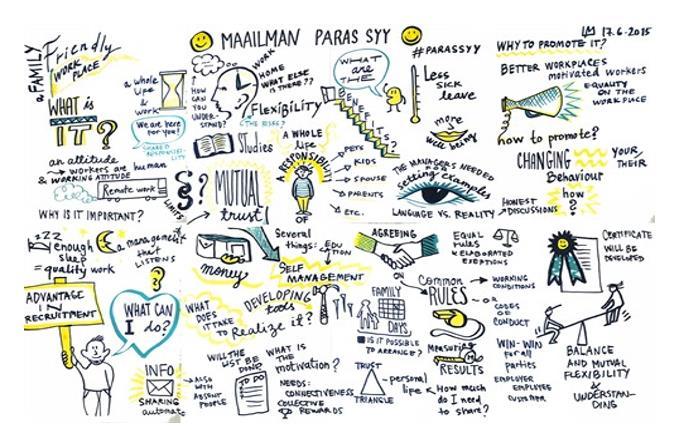 MAAILMAN PARAS SYY
#PARASSYY
17.6-2015
A FAMILY
Friendly
WORK
PLACE
WHAT is
IT?
an attitude
→ workers are human
& WORKING ATTITUDE
Remote work
LIMITS
WHY IS IT IMPORTANT?
a whole
life
&
work
We are here
for you!
SHARED
RESPONSIBI-
LITY
HOW
CAN
YOU
UNDER-
STAND?
WORK
HOME
WHAT ELSE
IS THERE??
Flexibility
(THE RISKS?)
Studies
§?
MUTUAL
trust!
A WHOLE
life
RESPONSIBILITY
OF
WHAT
ARE
THE
BENEFITS?
→ PETS
→ KIDS
→ SPOUSE
→ PARENTS
→ ETC.
Less
SICK
leave
more
well being
THE MANAGERS NEEDED
FOR
Setting examples
LANGUAGE VS. REALITY
HONEST
DISCUSSIONS
WHY TO PROMOTE IT?
BETTER WORKPLACES
motivated workers
EQUALITY
ON THE
WORKPLACE
how to promote?
CHANGING
YOUR,
THEIR
Behaviour
how
?
ZZZ
enough
sleep
= quality work
a management
that
LISTENS
ADVANTAGE
IN
RECRUITMENT
WHAT CAN
I do?
INFO
SHARING
automatic
→ ALSO
WITH
ABSENT
PEOPLE
money
Several
things:
SELF
MANAGEMENT
WHAT
DOES
IT TAKE
TO
Realize it?
DEVELOPING
tools
WILL THE
LIST BE
DONE?
TO DO
WHAT IS
THE
motivation?
NEEDS:
CONNECTIVENESS
COLLECTIVE
REWARDS
AGREEING
ON
Common
RULES
EQUAL
rules
& ELABORATED
→ WORKING
CONDITIONS
OR
CODES
OF
CONDUCT
FAMILY
DAYS
IS IT POSSIBLE
TO ARRANGE?
TRUST
TRIANGLE
personal
life
Measuring
RESULTS
How much
do I need
to share?
WIN-WIN
for all
parties
EMPLOYER
EMPLOYEE
CUSTOMER
CERTIFICATE
WILL BE
DEVELOPED
BALANCE
AND MUTUAL
FLEXIBILITY
&
UNDERSTAN-
DING